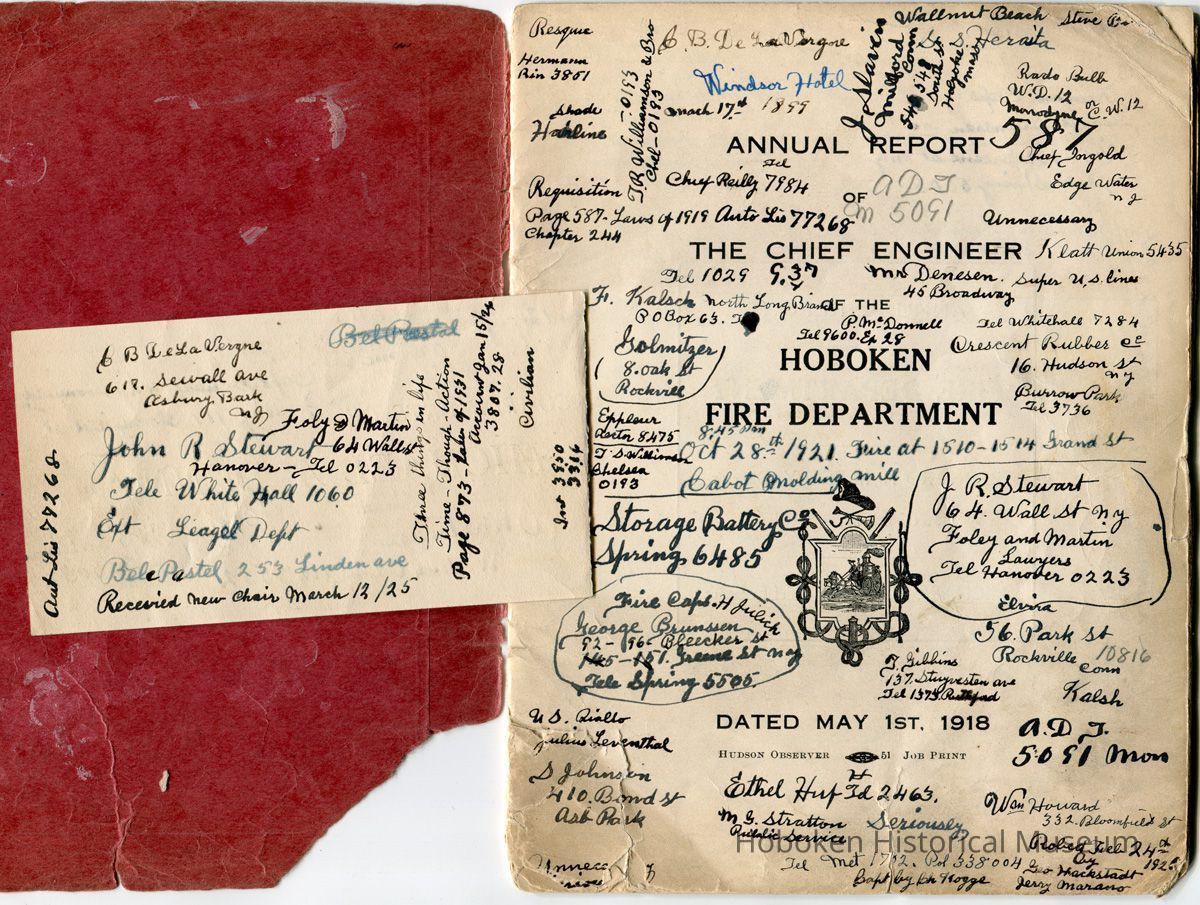 C B De La Vergne
617. Sewall ave
Asbury Park
NJ
Foly & Martin
64 Wall st
John R Stewart
Hanover - Tel 0223
Tele White Hall 1060
Ext Leagel Dept
253 Linden ave
Recevied new Chair March 12/25
Aut Lis 77268
Three things in life
Time - Though - Action
Page 873 - Laws of 1921
Account Jan 15/24
3807.28
Civilian
Resque
Hermann
Rin 3861
Shade
Hairline
T.R. Williamson & Bro
Chel - 0193
C. B. De La Vergne
Windsor Hotel
March 17th 1899
J. Slavin
Milford
Conn
Wallnut Beach
548
South st
Holyoke
Mass
Rado Bulb
W.D. 12
Monodyne or C.W. 12
587
Chief Ingold
Edge Water
NJ
ANNUAL REPORT
Tel
Chief Reilly 7984
Requisition
A D T
OF
M 5091
Page 587 - Laws of 1919 Auto Lis 77268
Unnecessary
Chapter 244
THE CHIEF ENGINEER
Klatt Union 5435
Tel 1029
Mr Denesen. Super U.S. Lines
45 Broadway
F. Kalsch North Long Branch
P O Box 63.
OF THE
P. McDonnell
Tel 9600. Ex 28
Tel Whitehall 7284
Crescent Rubber Co
16. Hudson st
NY
Golmitzer
8. Oak st
Rockvill
HOBOKEN
Burrow Park
Tel 3736
FIRE DEPARTMENT
8475
Chelsea
0193
8.45 Pm
Oct 28th 1921. Fire at 1510-1514 Grand st
Cabot Molding Mill
Storage Battery Co
Spring 6485
J. R. Stewart
64. Wall st NY
Foley and Martin
Lawyers
Tel Hanover 0223
Fire Caps. H Julich
George Brunssen
92 - 96 Bleecker st
145 - 151. Greene St NY
Tele Spring 5505
Elvira
56. Park St
Rockville
Conn
10816
Kalsh
T. Gibbins
137. Stuyvesten ave
U.S. Rialto
Julius Leventhal
DATED MAY 1ST, 1918
A. D. T.
5091 Mon
HUDSON OBSERVER 51 JOB PRINT
S Johnson
410. Bond st
Asb Park
Ethel Huf Tel 2463.
M. G. Stratton Seriously
Public Service
Wm Howard
332. Bloomfield st
Hoboken Historical Museum
Geo Hackstadt
Jerry Marano